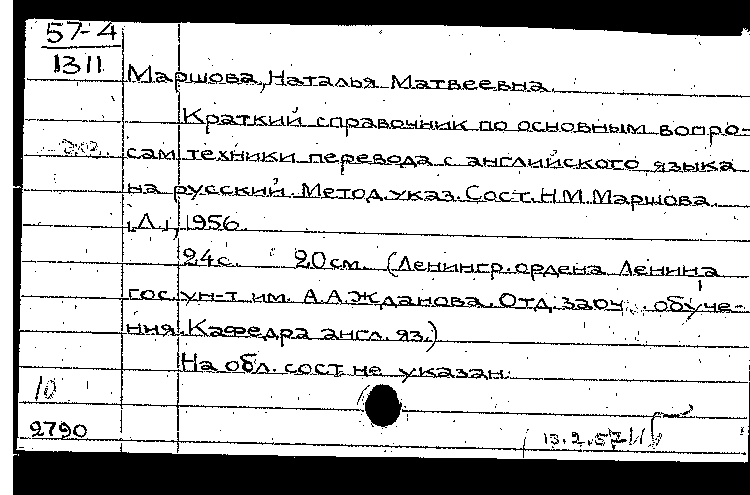 57-4
1311
Маршова, Наталья Матвеевна.
Краткий справочник по основным вопро-
сам техники перевода с английского языка
на русский. Метод. указ. Сост. Н.М. Маршова.
[Л.], 1956.
24с. 20см. (Ленингр. ордена Ленина
гос. ун-т им. А.А. Жданова. Отд. заоч. обуче-
ния. Кафедра англ. яз.)
На обл. сост. не указан.
10
2790
13.2.57